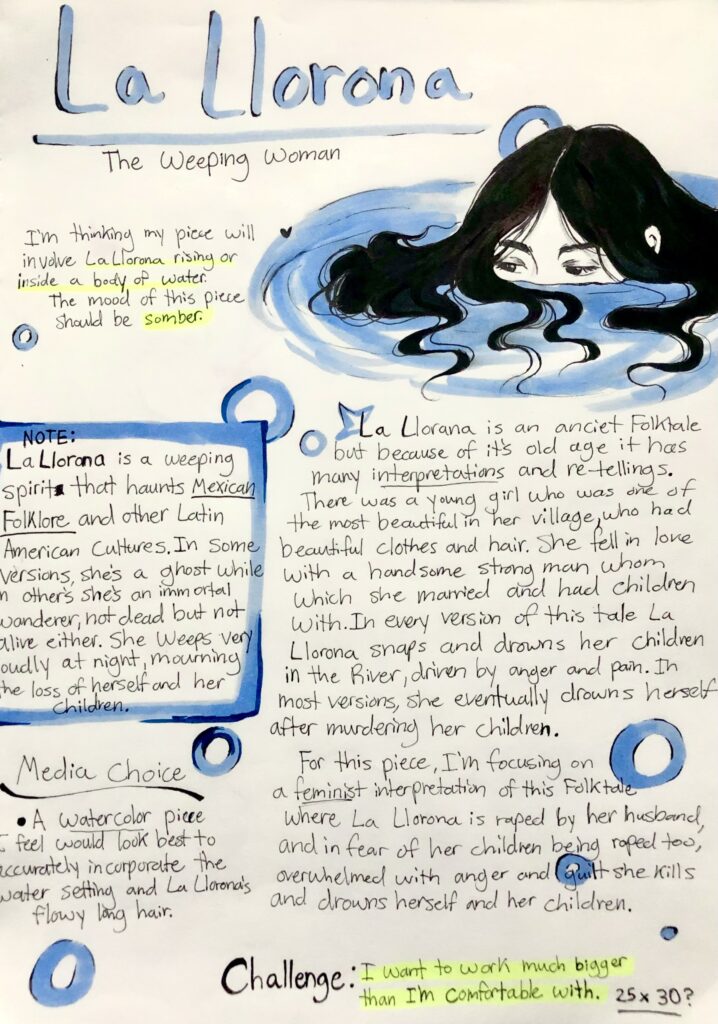 La Llorona
The Weeping Woman
I'm thinking my piece will
involve La Llorona rising or
inside a body of water.
The mood of this piece
should be somber.
NOTE:
La Llorona is a weeping
spirit that haunts Mexican
Folklore and other Latin
American Cultures. In some
versions, she's a ghost while
in others she's an immortal
wanderer, not dead but not
alive either. She Weeps very
loudly at night, mourning
the loss of herself and her
children.
Media Choice
• A watercolor piece
I feel would look best to
accurately incorporate the
water setting and La Llorona's
flowy long hair.
La Llorana is an anciet Folktale
but because of it's old age it has
many interpretations and re-tellings.
There was a young girl who was one of
the most beautiful in her village, who had
beautiful clothes and hair. She fell in love
with a handsome strong man whom
which she married and had children
with. In every version of this tale La
Llorona snaps and drowns her children
in the River, driven by anger and pain. In
most versions, she eventually drowns herself
after murdering her children.
For this piece, I'm focusing on
a feminist interpretation of this Folktale
where La Llorona is raped by her husband,
and in fear of her children being raped too,
overwhelmed with anger and guilt she kills
and drowns herself and her children.
Challenge: I want to work much bigger
than I'm comfortable with. 25x30?